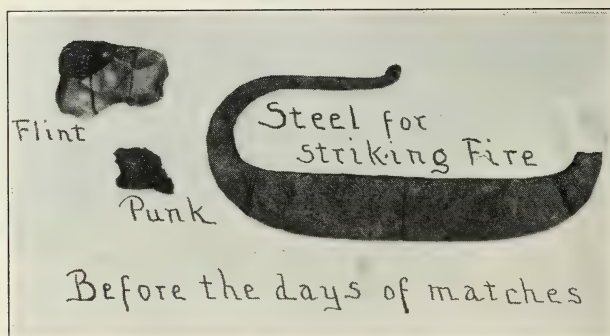 Flint
Steel for
striking Fire
Punk
Before the days of matches